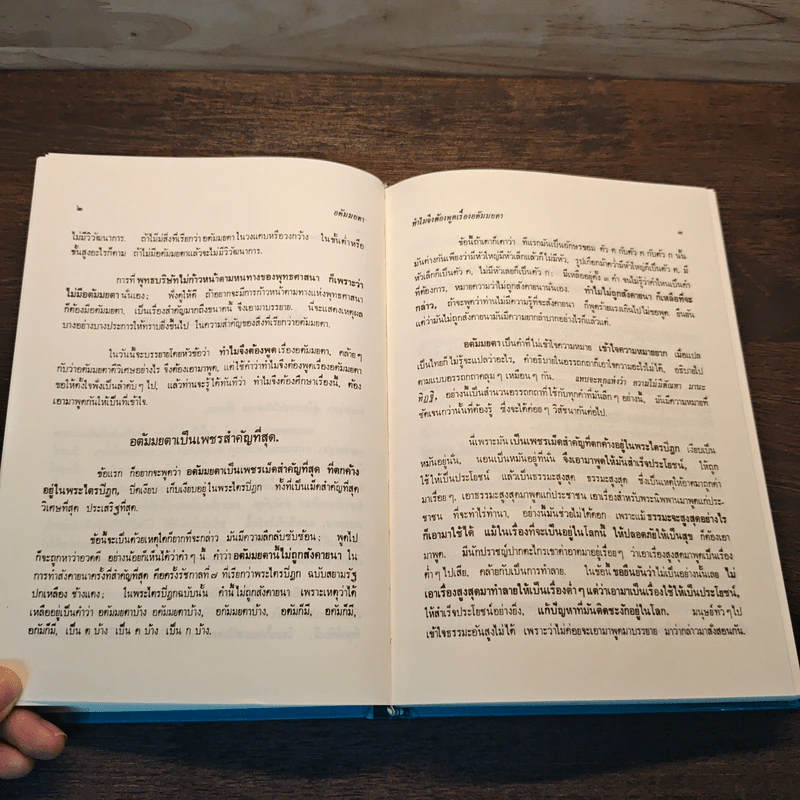 ๒
อตัมมยตา
ไม่มีวิวัฒนาการ. ถ้าไม่มีสิ่งที่เรียกว่าอตัมมยตา ในวงแคบหรือวงกว้าง ในชั้นต่ำหรือ
ชั้นสูงอะไรก็ตาม ถ้าไม่มีอตัมมยตาแล้วจะไม่มีวิวัฒนาการ.
การที่ พุทธบริษัทไม่ก้าวหน้าตามหนทางของพุทธศาสนา ก็เพราะว่า
ไม่มีอตัมมยตา นั่นเอง; ฟังดูให้ดี ถ้าอยากจะมีการก้าวหน้าตามทางแห่งพุทธศาสนา
ก็ต้องมีอตัมมยตา. เป็นเรื่องสำคัญมากถึงขนาดนี้ จึงเอามาบรรยาย. นี่จะแสดงเหตุผล
บางอย่างบางประการให้ทราบยิ่งขึ้นไป ในความสำคัญของสิ่งที่เรียกว่าอตัมมยตา.
ในวันนี้จะบรรยายโดยหัวข้อว่า ทำไมจึงต้องพูด เรื่องอตัมมยตา, คล้าย ๆ
กับว่าอตัมมยตาตัววิเศษอย่างไร จึงเอามาพูด, แต่ใช้คำว่าทำไมจึงต้องพูดเรื่องอตัมมยตา
ขอให้ตั้งใจฟังเป็นลำดับ ๆ ไป, แล้วท่านจะรู้ได้ทันทีว่า ทำไมจึงต้องศึกษาเรื่องนี้, ต้อง
เอามาพูดกันให้เป็นที่เข้าใจ.
อตัมมยตาเป็นเพชรสำคัญที่สุด.
ข้อแรก ก็อยากจะพูดว่า อตัมมยตาเป็นเพชรเม็ดสำคัญที่สุด ที่ตกค้าง
อยู่ในพระไตรปิฎก, ปิดเงียบ เก็บเงียบอยู่ในพระไตรปิฎก ทั้งที่เป็นเม็ดสำคัญที่สุด
วิเศษที่สุด ประเสริฐที่สุด.
ข้อนี้จะเป็นด้วยเหตุใดก็ยากที่จะกล่าว มันมีความลึกลับซับซ้อน; พูดไป
ก็จะถูกหาว่าอวดดี อย่างน้อยก็เห็นได้ว่าคำ ๆ นี้ คำว่า อตัมมยตานี้ไม่ถูกสังคายนา ใน
การทำสังคายนาครั้งที่สำคัญที่สุด คือครั้งรัชกาลที่๗ ที่เรียกว่าพระไตรปิฎก ฉบับสยามรัฐ
ปกเหลือง ช้างแดง; ในพระไตรปิฎกฉบับนั้น คำนี้ไม่ถูกสังคายนา เพราะเหตุว่าได้
เหลืออยู่เป็นคำว่า อตัมมยตาบ้าง อคัมมยตาบ้าง, อกัมมยตาบ้าง, อตัมก็มี, อคัมก็มี,
อกัมก็มี, เป็น ต บ้าง เป็น ค บ้าง เป็น ก บ้าง.
ทำไมจึงต้องพูดเรื่องอตัมมยตา
๓
ข้อนี้ถ้าเดาก็เดาว่า ที่แรกมันเป็นอักษรขอม ตัว ต กับตัว ค กับตัว ก นั้น
มันต่างกันเพียงว่ามีหัวใหญ่มีหัวเล็กแล้วก็ไม่มีหัว,
มีหัวเล็กก็เป็นตัว ค, ไม่มีหัวเลยก็เป็นตัว ก;
ที่ต้องการ, หมายความว่าไม่ถูกสังคายนานั่นเอง. ทำไมไม่ถูกสังคายนา ก็เหลือที่จะ
กล่าว, ถ้าจะพูดว่าท่านไม่มีความรู้ที่จะสังคายนา ก็พูดร้ายแรงเกินไปไม่ขอพูด ยืนยัน
แต่ว่ามันไม่ถูกสังคายนามันมีความยากลำบากอย่างไรก็แล้วแต่.
อตัมมยตา เป็นคำที่ไม่เข้าใจความหมาย เข้าใจความหมายยาก เมื่อแปล
เป็นไทยก็ไม่รู้จะแปลว่าอะไร, คำอธิบายในอรรถกถาก็เอาใจความอะไรไม่ได้, อธิบายไป
ตามแบบอรรถกถาคลุม ๆ เหมือน ๆ กัน. แทบจะทุกแห่งว่า ความไม่มีตัณหา มานะ
ทิฏฐิ, อย่างนี้เป็นสำนวนอรรถกถาที่ใช้กับทุกคำที่มันลึก ๆ อย่างนั้น, มันมีความหมายที่
ชัดเจนกว่านั้นที่ต้องรู้ ซึ่งจะได้ค่อย ๆ วิสัชนากันต่อไป.
นี่เพราะมัน เป็นเพชรเม็ดสำคัญที่ตกค้างอยู่ในพระไตรปิฎก เงียบเป็น
หมันอยู่นั่น, นอนเป็นหมันอยู่ที่นั่น จึงเอามาพูดให้มันสำเร็จประโยชน์, ให้ถูก
ใช้ให้เป็นประโยชน์ แล้วเป็นธรรมะสูงสุด ธรรมะสูงสุด ซึ่งเป็นเหตุให้ยาตมาถูกด่า
มาเรื่อย ๆ, เอาธรรมะสูงสุดมาพูดแก่ประชาชน เอาเรื่องสำหรับพระนิพพานมาพูดแก่ประ-
ชาชน ที่จะทำไร่ทำนา, อย่างนี้มันช่วยไม่ได้ดอก เพราะแม้ ธรรมะจะสูงสุดอย่างไร
ก็เอามาใช้ได้ แม้ในเรื่องที่จะเป็นอยู่ในโลกนี้ ให้ปลอดภัยให้เป็นสุข ก็ต้องเอา
มาพูด. มีนักปราชญ์ปากตะไกรเขาด่าอาตมาอยู่เรื่อย ๆ ว่าเอาเรื่องสูงสุดมาพูดเป็นเรื่อง
ต่ำ ๆ ไปเสีย, คล้ายกับเป็นการทำลาย. ในข้อนี้ ขอยืนยันว่าไม่เป็นอย่างนั้นเลย ไม่
เอาเรื่องสูงสุดมาทำลายให้เป็นเรื่องต่ำๆ แต่ว่าเอามาเป็นเรื่องใช้ให้เป็นประโยชน์,
ให้สำเร็จประโยชน์อย่างยิ่ง, แก้ปัญหาที่มันติดชะงักอยู่ในโลก. มนุษย์ทั่ว ๆ ไป
เข้าใจธรรมะอันสูงไม่ได้ เพราะว่าไม่ค่อยจะเอามาพูดมาบรรยาย มาว่ากล่าวมาสั่งสอนกัน.